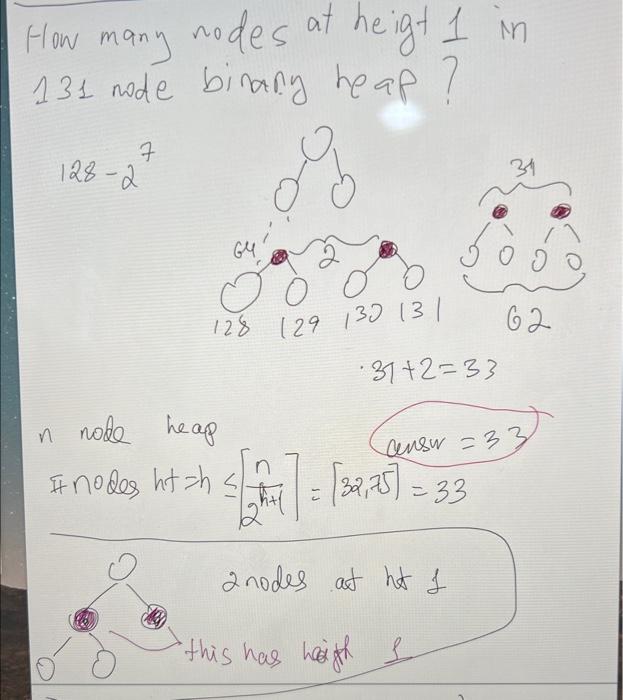 How many nodes at heigt 1 in
131 node binary heap?
128 - 2^7
31
64
2
128 129 130 131
62
31+2=33
n node heap
answ = 33
#nodes ht=h ≤ ⌈n/2^h+1⌉ = ⌈32,75⌉ = 33
2 nodes at ht 1
this has heigth 1